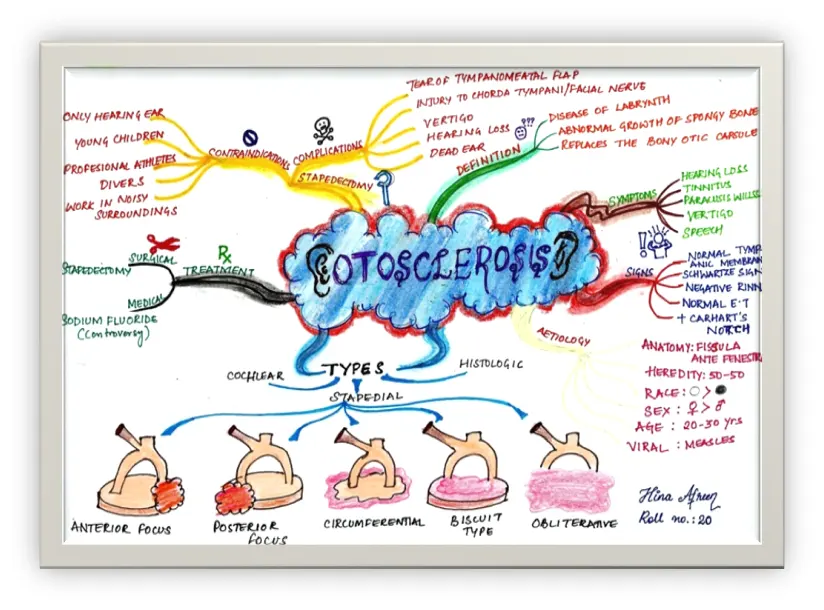 TEAR OF TYMPANOMEATAL FLAP
INJURY TO CHORDA TYMPANI/FACIAL NERVE
VERTIGO
HEARING LOSS
DEAD EAR
COMPLICATIONS
STAPEDECTOMY
CONTRAINDICATIONS
ONLY HEARING EAR
YOUNG CHILDREN
PROFESIONAL ATHLETES
DIVERS
WORK IN NOISY
SURROUNDINGS
???
DEFINITION
DISEASE OF LABRYNTH
ABNORMAL GROWTH OF SPONGY BONE
REPLACES THE BONY OTIC CAPSULE
SYMPTOMS
HEARING LOSS
TINNITUS
PARACUSIS WILLSI
VERTIGO
SPEECH
OTOSCLEROSIS
SIGNS
NORMAL TYMP
ANIC MEMBRAN
SCHWARTZE SIGN
NEGATIVE RINN
NORMAL E.T
+ CARHART'S
NOTCH
Rx
TREATMENT
SURGICAL
STAPEDECTOMY
MEDICAL
SODIUM FLUORIDE
(controversy)
AETIOLOGY
ANATOMY: FISSULA
ANTE FENESTRA
HEREDITY: 50-50
RACE: ○ > ●
SEX : ♀ > ♂
AGE : 20-30 yrs
VIRAL : MEASLES
TYPES
COCHLEAR
HISTOLOGIC
STAPEDIAL
ANTERIOR FOCUS
POSTERIOR
FOCUS
CIRCUMFERENTIAL
BISCUIT
TYPE
OBLITERATIVE
Hina Afreen
Roll no.: 20